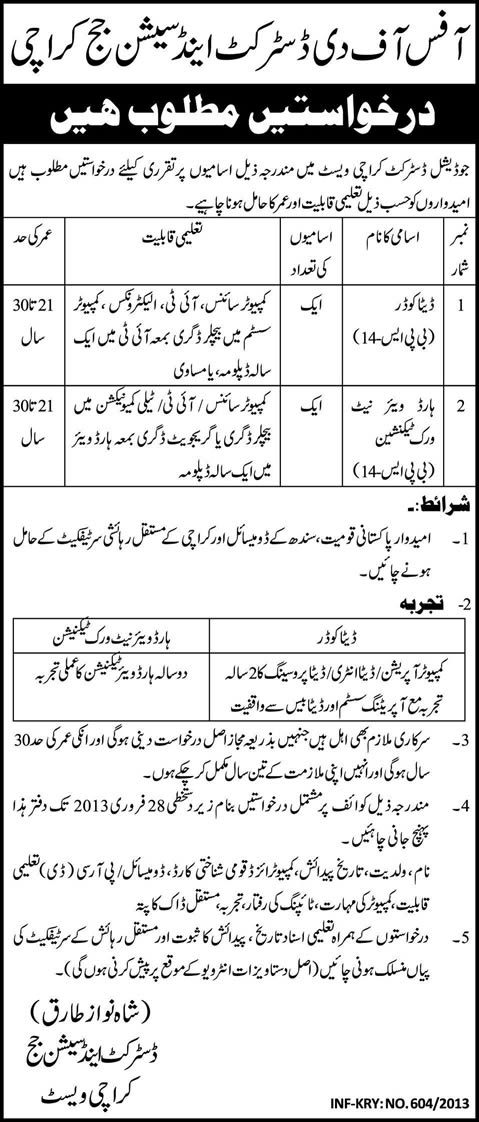 آفس آف دی ڈسٹرکٹ اینڈ سیشن جج کراچی
درخواستیں مطلوب ھیں
جوڈیشل ڈسٹرکٹ کراچی ویسٹ میں مندرجہ ذیل اسامیوں پر تقرری کیلئے درخواستیں مطلوب ہیں
امیدواروں کو حسب ذیل تعلیمی قابلیت اور عمر کا حامل ہونا چاہیے۔
نمبر شمار اسامی کا نام اسامیوں کی تعداد تعلیمی قابلیت عمر کی حد
1 ڈیٹا کوڈر ایک کمپیوٹر سائنس، آئی ٹی، الیکٹرونکس، کمپیوٹر 21 تا 30
(بی پی ایس-14) سسٹم میں بیچلر ڈگری بمعہ آئی ٹی میں ایک سال
سالہ ڈپلومہ، یا مساوی
2 ہارڈ ویئر نیٹ ایک کمپیوٹر سائنس/آئی ٹی/ٹیلی کمیونیکشن میں 21 تا 30
ورک ٹیکنشین بیچلر ڈگری یا گریجویٹ ڈگری بمعہ ہارڈ ویئر سال
(بی پی ایس-14) میں ایک سالہ ڈپلومہ
شرائط:۔
1۔ امیدوار پاکستانی قومیت، سندھ کے ڈومیسائل اور کراچی کے مستقل رہائشی سرٹیفکیٹ کے حامل
ہونے چائیں۔
2- تجربہ
ڈیٹا کوڈر ہارڈ ویئر نیٹ ورک ٹیکنیشن
کمپیوٹر آپریشن/ڈیٹا انٹری/ڈیٹا پروسینگ کا 2 سالہ دو سالہ ہارڈ ویئر ٹیکنیشن کا عملی تجربہ
تجربہ مع آپریٹنگ سسٹم اور ڈیٹا بیس سے واقفیت
3۔ سرکاری ملازم بھی اہل ہیں جنہیں بذریعہ مجاز اصل درخواست دینی ہوگی اور انکی عمر کی حد 30
سال ہوگی اور انہیں اپنی ملازمت کے تین سال مکمل کر چکے ہوں۔
4۔ مندرجہ ذیل کوائف پر مشتمل درخواستیں بنام زیر دستخطی 28 فروری 2013 تک دفتر ھذا
پہنچ جانی چاہئیں۔
نام، ولدیت، تاریخ پیدائش، کمپیوٹرائزڈ قومی شناختی کارڈ، ڈومیسائل/پی آر سی (ڈی) تعلیمی
قابلیت، کمپیوٹر کی مہارت، ٹائپنگ کی رفتار، تجربہ، مستقل ڈاک کا پتہ
5۔ درخواستوں کے ہمراہ تعلیمی اسناد تاریخ، پیدائش کا ثبوت اور مستقل رہائش کے سرٹیفکیٹ کی
پیاں منسلک ہونی چائیں (اصل دستاویزات انٹرویو کے موقع پر پیش کرنی ہوں گی)۔
(شاہ نواز طارق)
ڈسٹرکٹ اینڈ سیشن جج
کراچی ویسٹ
INF-KRY: NO. 604/2013